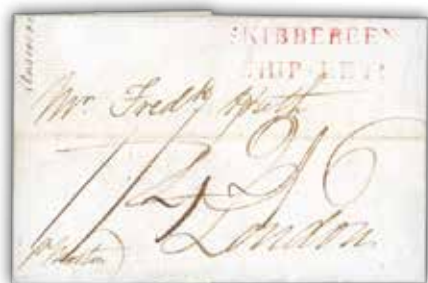 SKIBBEREEN
SHIP LETR
Mr. Fredk Huth
1/4 2/6
London